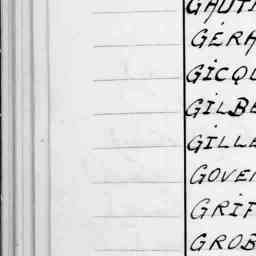 GAUT
GERA
GICQU
GILBE
GILLE
GOVE
GRIF
GROB